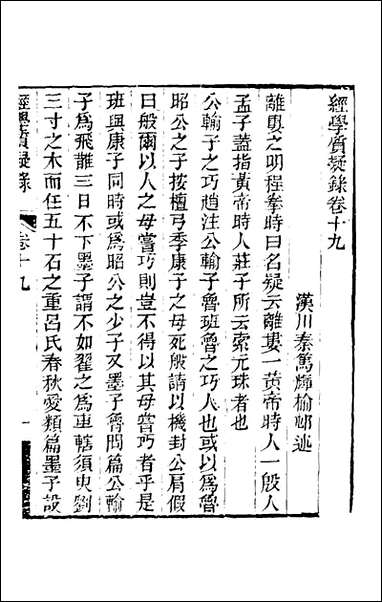 經學質疑錄卷十九
漢川秦篤輝榆邨述
離婁之明程拳時曰名疑云離婁一黃帝時人一殷人
孟子蓋指黃帝時人莊子所云索元珠者也
公輸子之巧趙注公輸子魯班魯之巧人也或以為魯
昭公之子按檀弓季康子之母死般請以機封公肩假
曰般爾以人之母嘗巧則豈不得以其母嘗巧者乎是
班與康子同時或為昭公之少子又墨子魯問篇公輸
子為飛䧿三日不下墨子謂不如翟之為車轄須臾劉
三寸之木而任五十石之重呂氏春秋愛類篇墨子設
經學質疑錄
卷十九
一